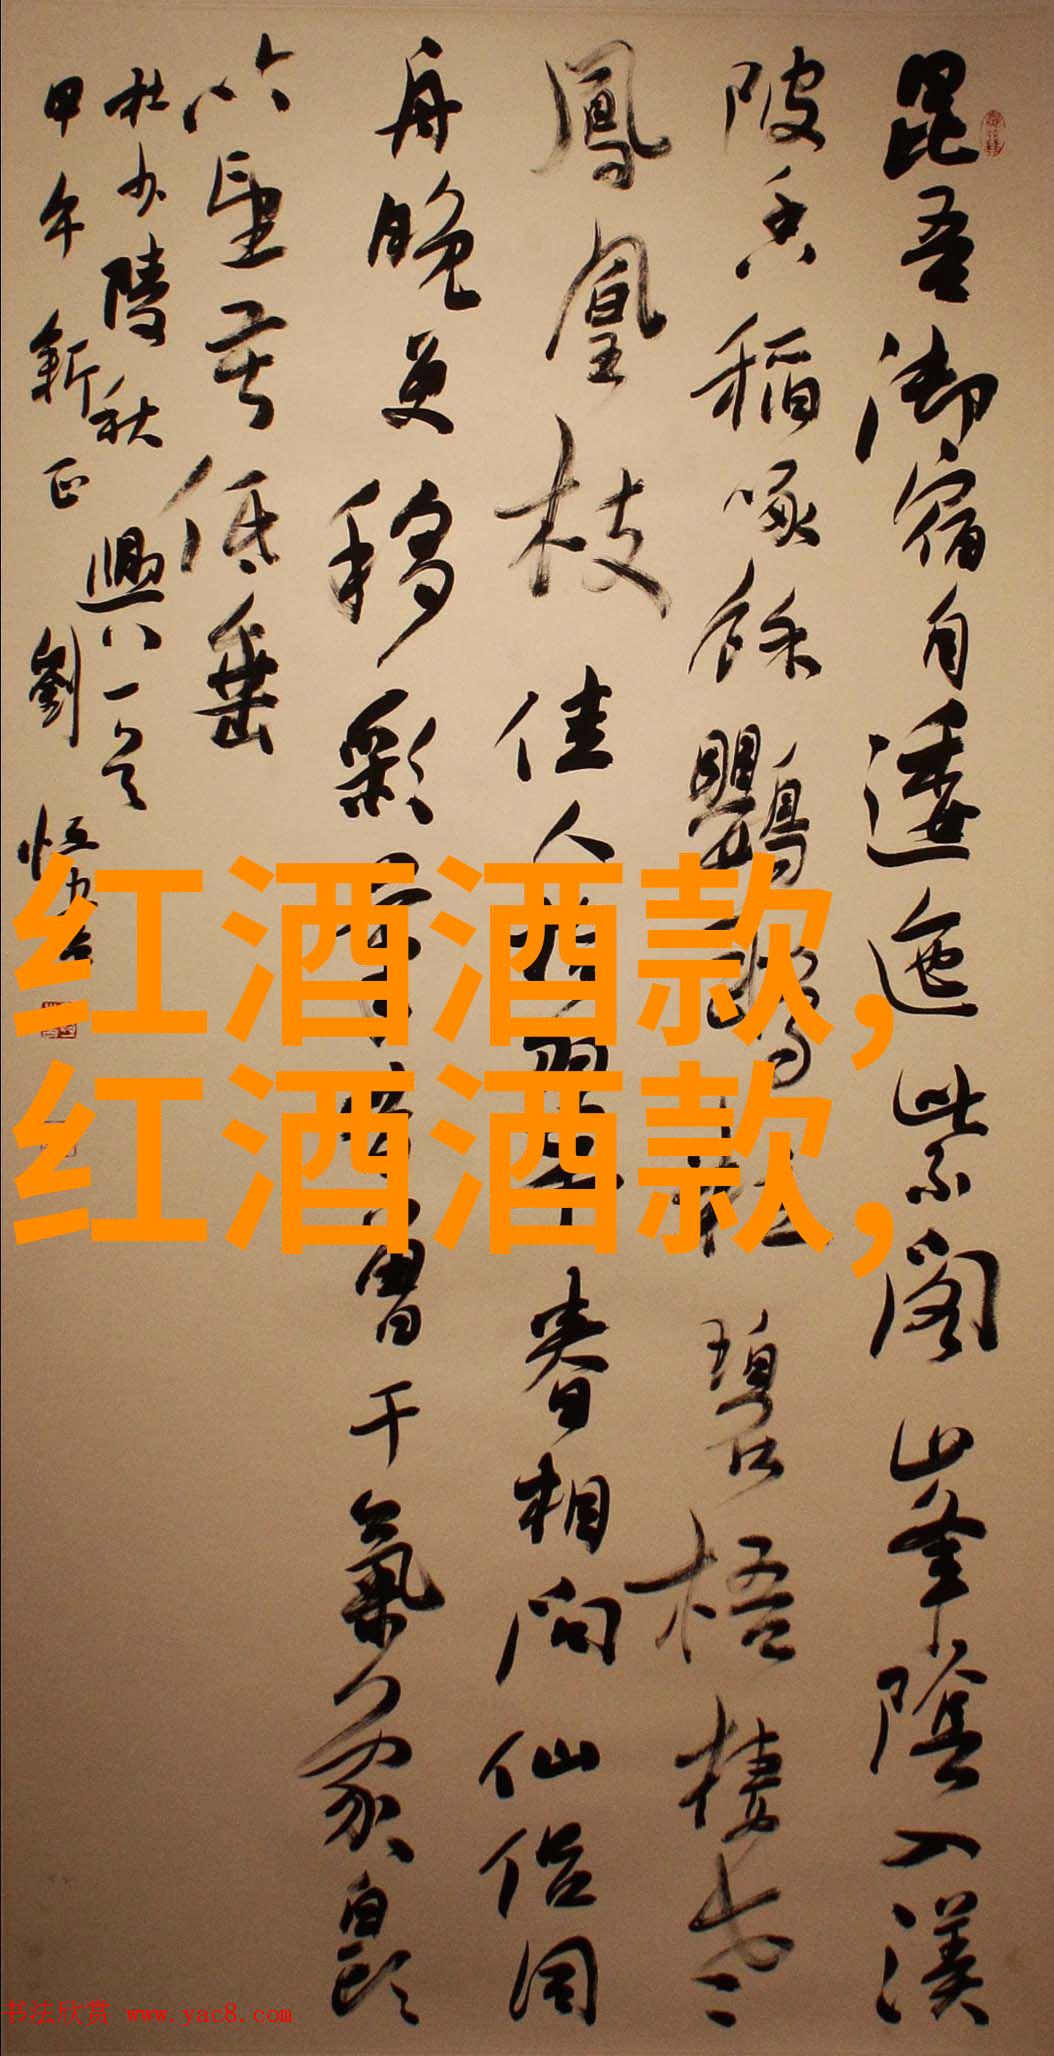 昆吾御宿自逶迤紫閣山峯陰入渼
陂香稻啄餘鸚鵡粒碧梧棲老
鳳凰枝佳人拾翠春相問仙侣同
舟晚更移彩筆昔曾干氣象白頭
吟望苦低垂
杜少陵秋興八一首
甲午新正劉恒
红酒酒款,
红酒酒款,
书法欣赏 www.yac8.com